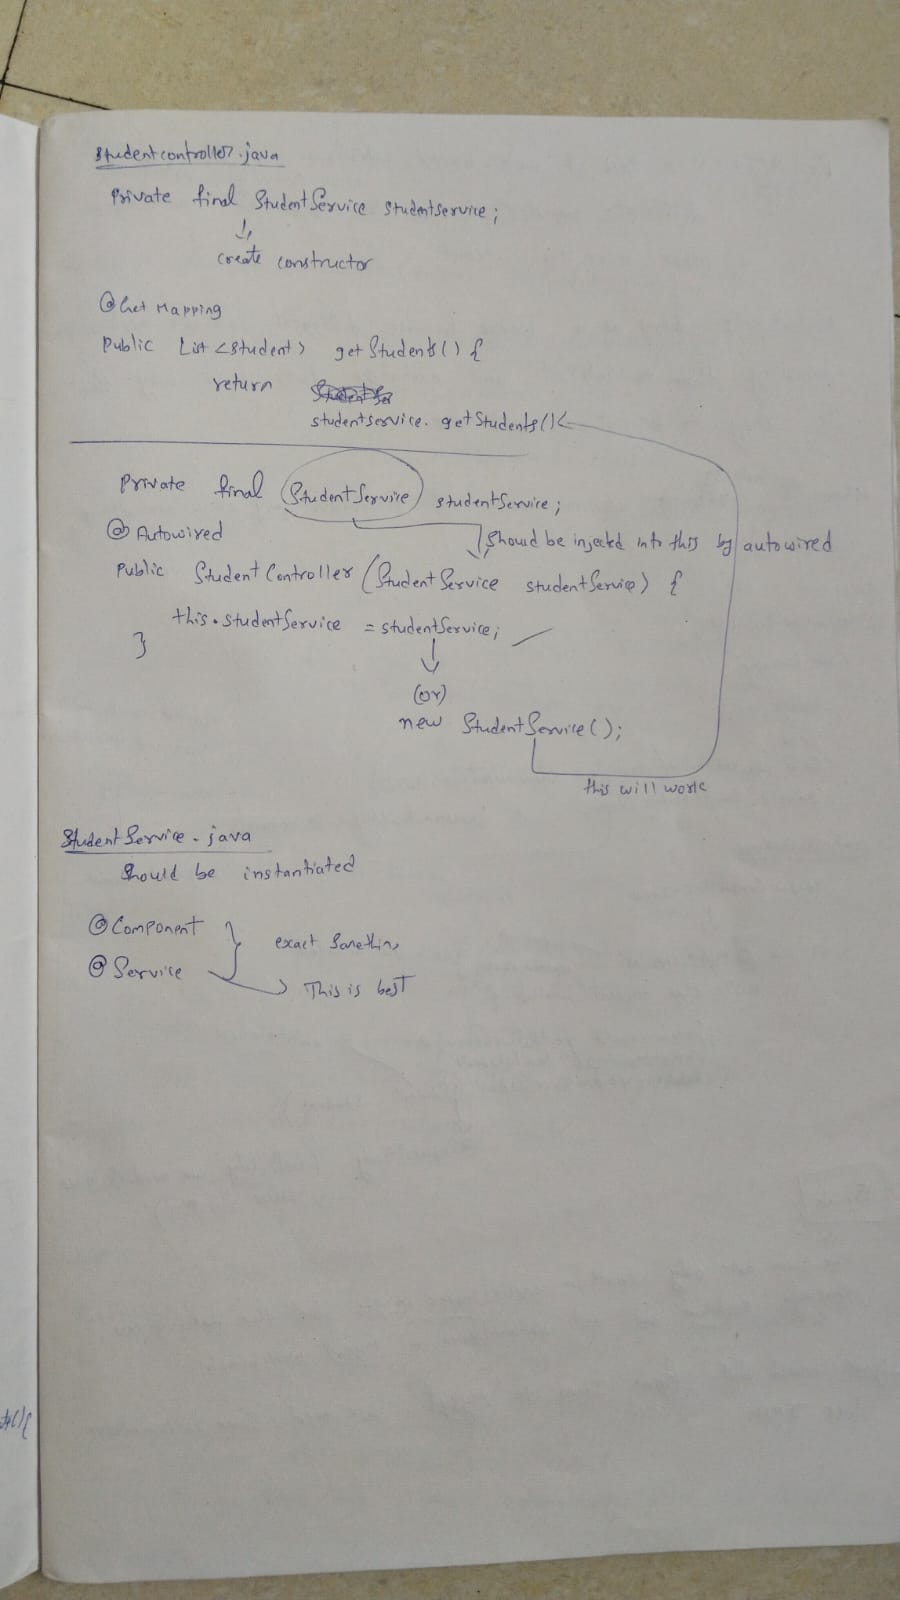 Studentcontroller.java
Private final StudentService studentservice;
create constructor
@Get Mapping
Public List <Student> getStudents() {
return
studentservice. getStudents()
Private final StudentService studentService;
@ Autowired
Should be injected into this by autowired
Public StudentController (StudentService studentService) {
this.studentService = studentService;
}
(or)
new StudentService();
this will work
StudentService.java
Should be instantiated
@Component
exact Samething
@ Service
This is best